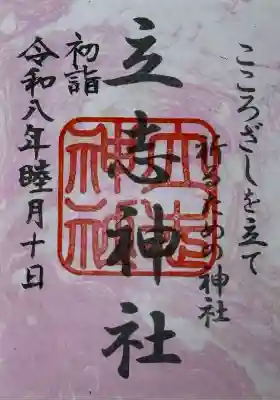 こころざしを立て
祈るための神社
立志神社
初詣
令和八年睦月十日
立志神社